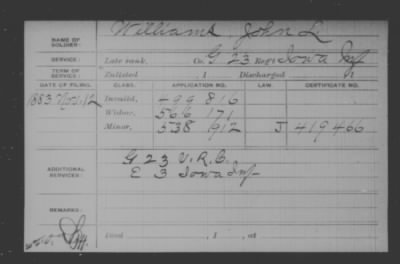 NAME OF SOLDIER: Williams, John L.
SERVICE: Late rank, Co. G 23 Reg't Iowa Inf
TERM OF SERVICE: Enlisted , 1 Discharged , 1
DATE OF FILING. CLASS. APPLICATION NO. LAW. CERTIFICATE NO.
1883 Nov. 12 Invalid, 499 816
Widow, 566 171
Minor, 538 912 J 419466
ADDITIONAL SERVICES: G 23 V.R.C.
E 3 Iowa Inf
REMARKS:
Died , 1 , at